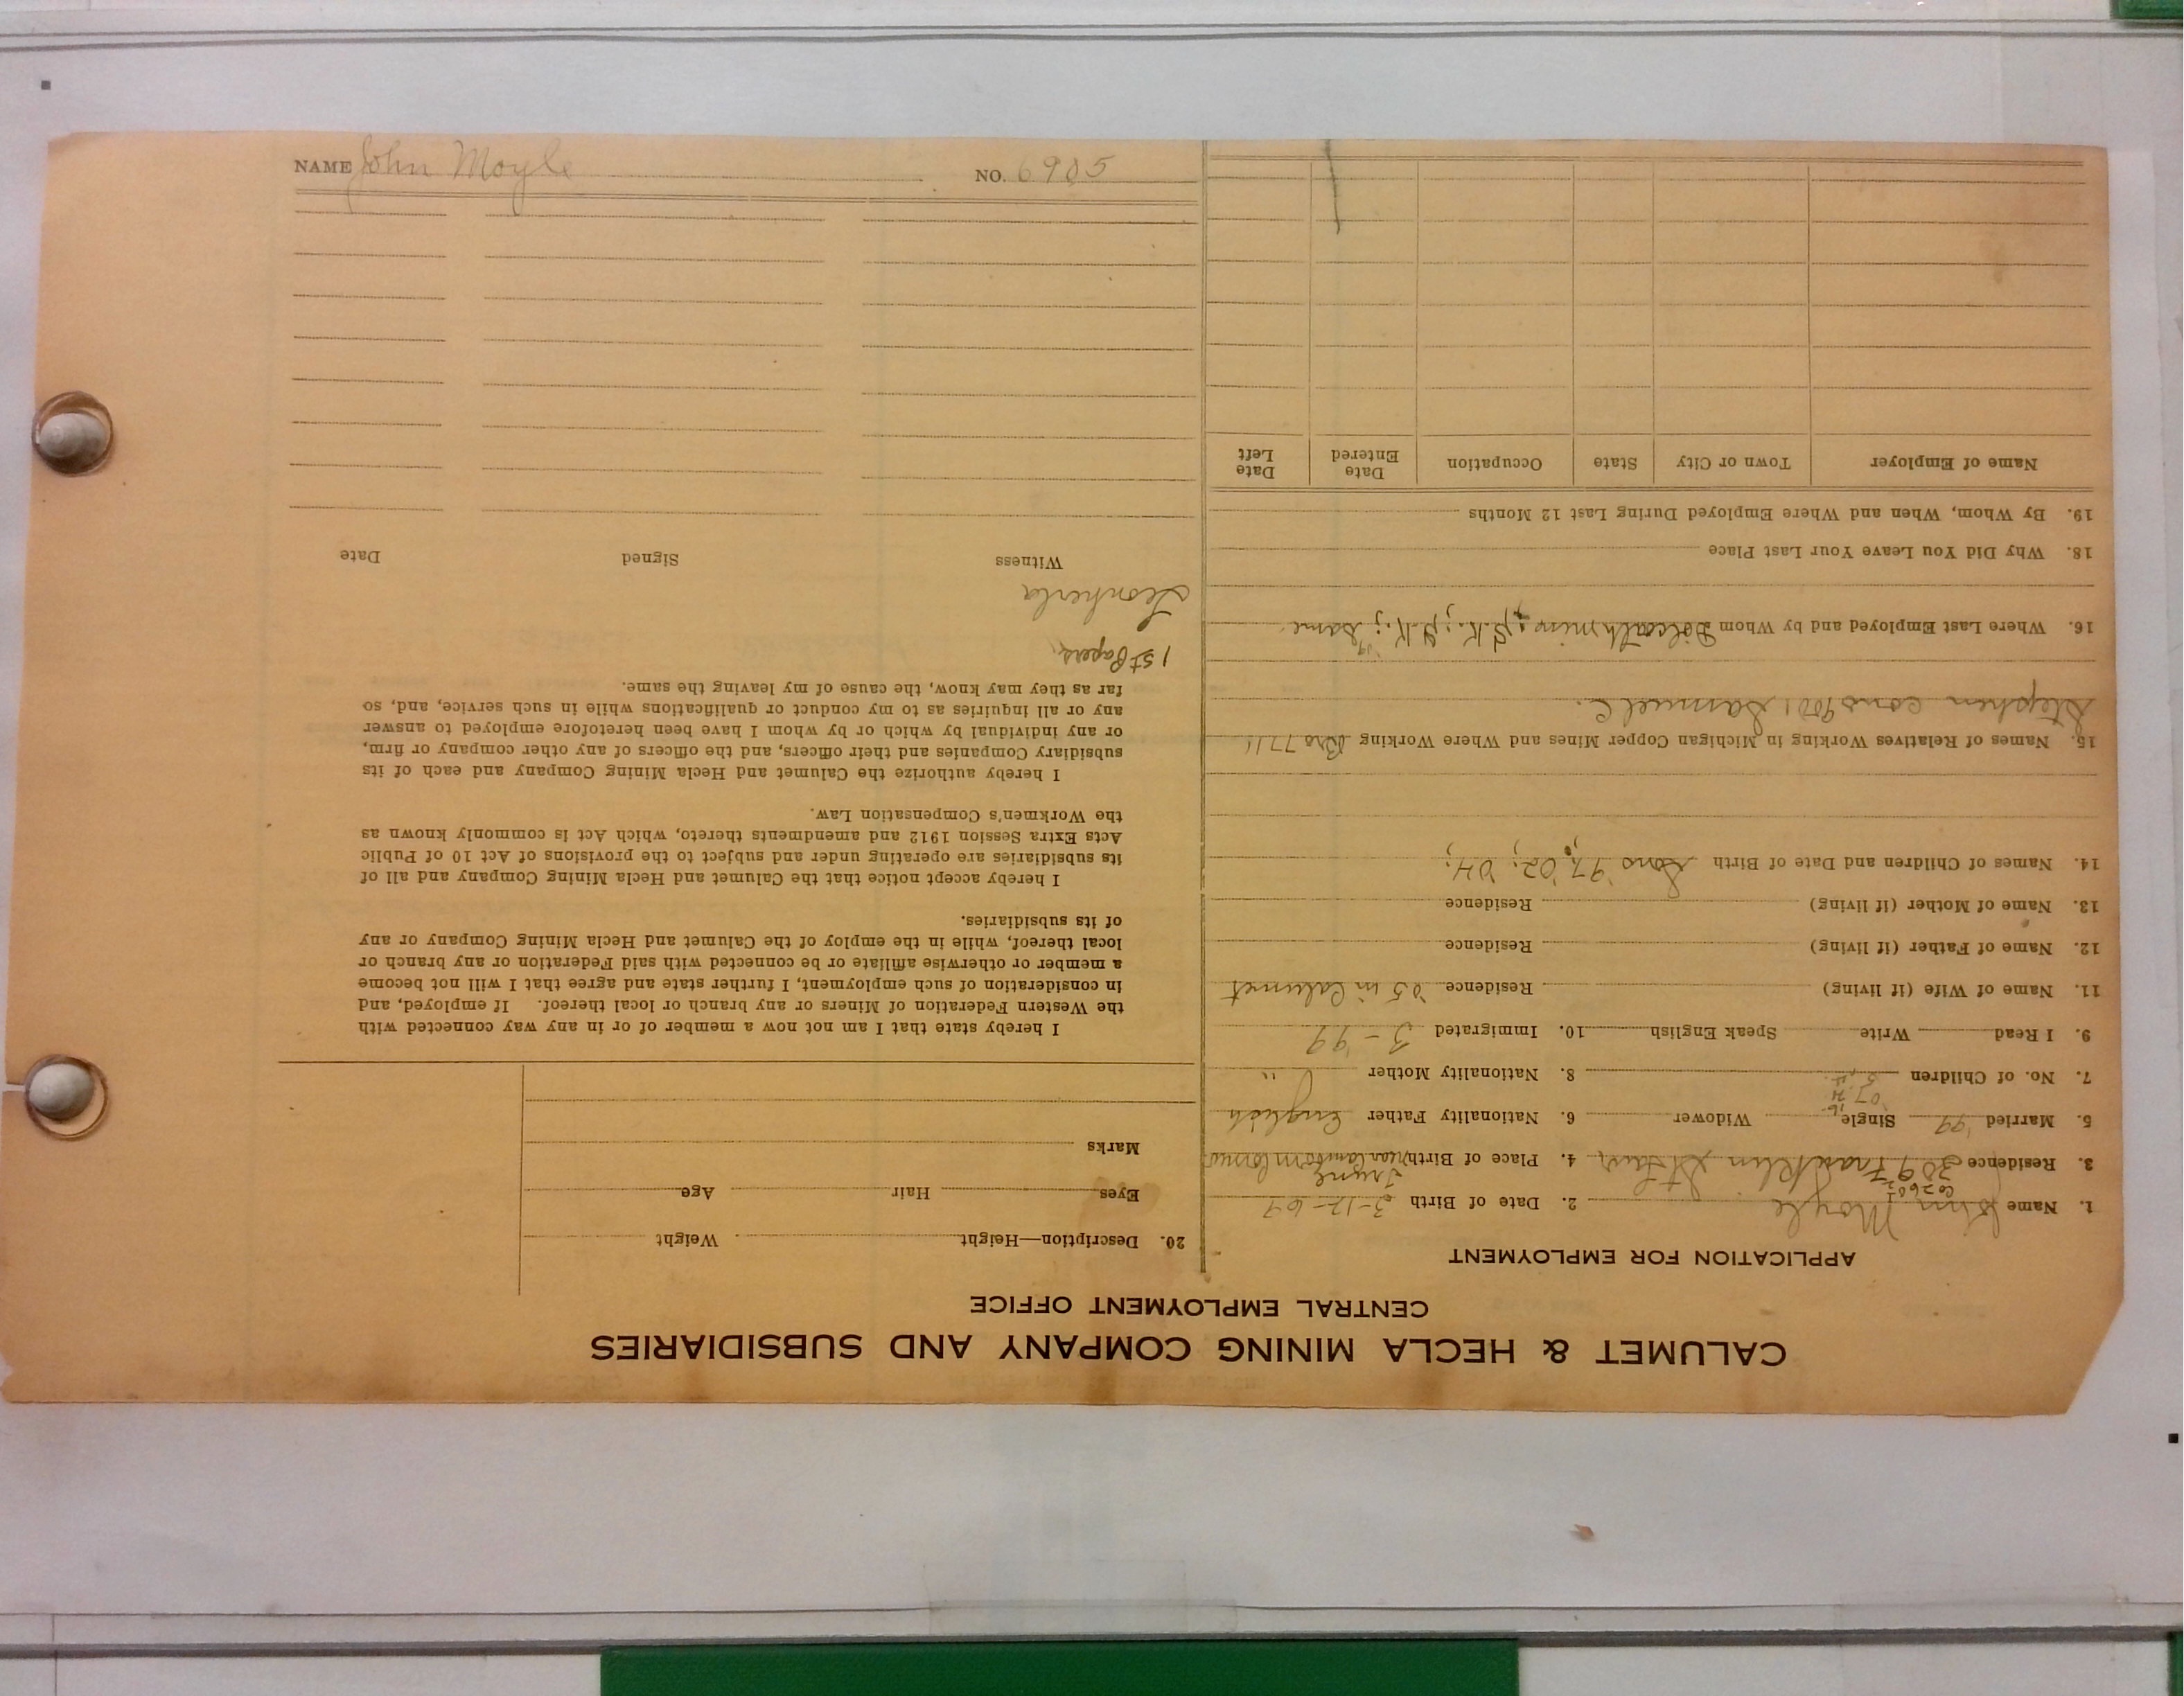 CALUMET & HECLA MINING COMPANY AND SUBSIDIARIES
CENTRAL EMPLOYMENT OFFICE
APPLICATION FOR EMPLOYMENT
1. Name John Moyle 2. Date of Birth 3-12-67
3. Residence 309 Franklin St 4. Place of Birth
5. Married '99 Single Widower 6. Nationality Father English
7. No. of Children 8. Nationality Mother "
9. I Read Write Speak English 10. Immigrated 3-99
11. Name of Wife (if living) Residence '05 in Calumet
12. Name of Father (if living) Residence
13. Name of Mother (if living) Residence
14. Names of Children and Date of Birth Sons '97; '02; '04;
15. Names of Relatives Working in Michigan Copper Mines and Where Working Bro 7711
Stephen cons 9001 Samuel C.
16. Where Last Employed and by Whom Dolcoath mine; S.K.; S.K.; Same
18. Why Did You Leave Your Last Place
19. By Whom, When and Where Employed During Last 12 Months
Name of Employer Town or City State Occupation Date Entered Date Left
20. Description—Height Weight
Eyes Hair Age
Marks
I hereby state that I am not now a member of or in any way connected with
the Western Federation of Miners or any branch or local thereof. If employed, and
in consideration of such employment, I further state and agree that I will not become
a member or otherwise affiliate or be connected with said Federation or any branch or
local thereof, while in the employ of the Calumet and Hecla Mining Company or any
of its subsidiaries.
I hereby accept notice that the Calumet and Hecla Mining Company and all of
its subsidiaries are operating under and subject to the provisions of Act 10 of Public
Acts Extra Session 1912 and amendments thereto, which Act is commonly known as
the Workmen's Compensation Law.
I hereby authorize the Calumet and Hecla Mining Company and each of its
subsidiary Companies and their officers, and the officers of any other company or firm,
or any individual by which or by whom I have been heretofore employed to answer
any or all inquiries as to my conduct or qualifications while in such service, and, so
far as they may know, the cause of my leaving the same.
1st Papers
Witness Signed Date
NAME John Moyle NO. 6905